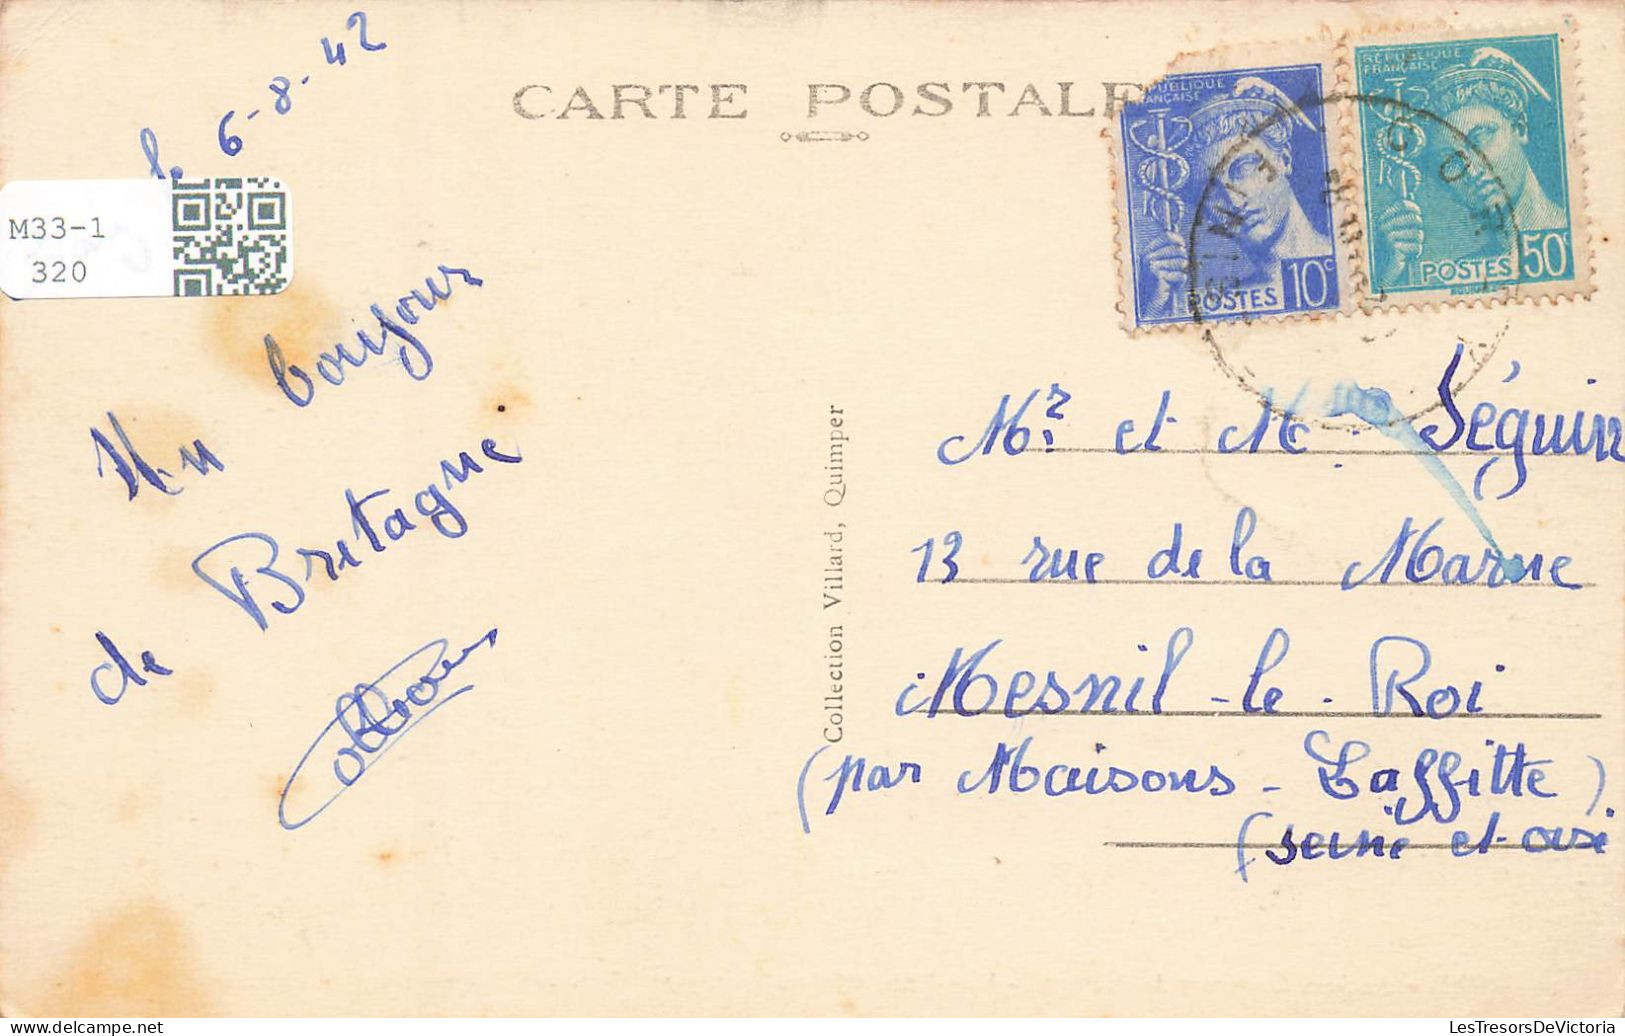 le 6-8-42
CARTE POSTALE
M33-1
320
Un bonjour
de Bretagne
Collection Villard, Quimper
RÉPUBLIQUE
FRANÇAISE
POSTES 10c
RÉPUBLIQUE
FRANÇAISE
POSTES 50c
Mr et M. Séguin
13 rue de la Marne
Mesnil-le-Roi
(par Maisons-Laffitte)
(seine et oise
LesTresorsDeVictoria